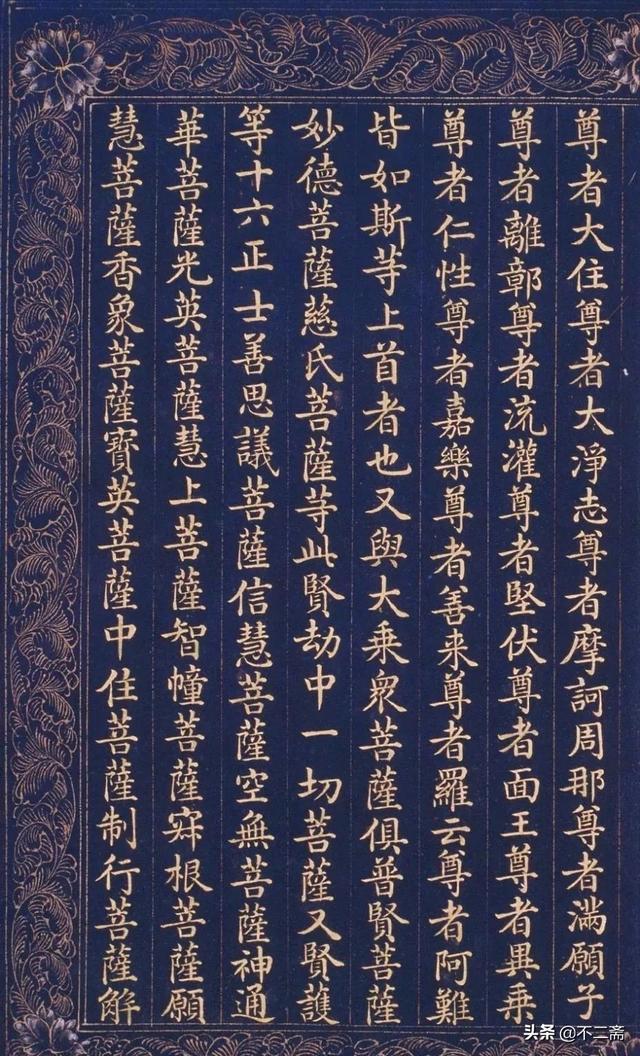 尊者大住尊者大淨志尊者摩訶周那尊者滿願子
尊者離鄣尊者流灌尊者堅伏尊者面王尊者異乗
尊者仁性尊者嘉樂尊者善来尊者羅云尊者阿難
皆如斯等上首者也又與大乗衆菩薩俱普賢菩薩
妙德菩薩慈氏菩薩等此賢劫中一切菩薩又賢護
等十六正士善思議菩薩信慧菩薩空無菩薩神通
華菩薩光英菩薩慧上菩薩智幢菩薩寂根菩薩願
慧菩薩香象菩薩寶英菩薩中住菩薩制行菩薩解
头条 @不二斋